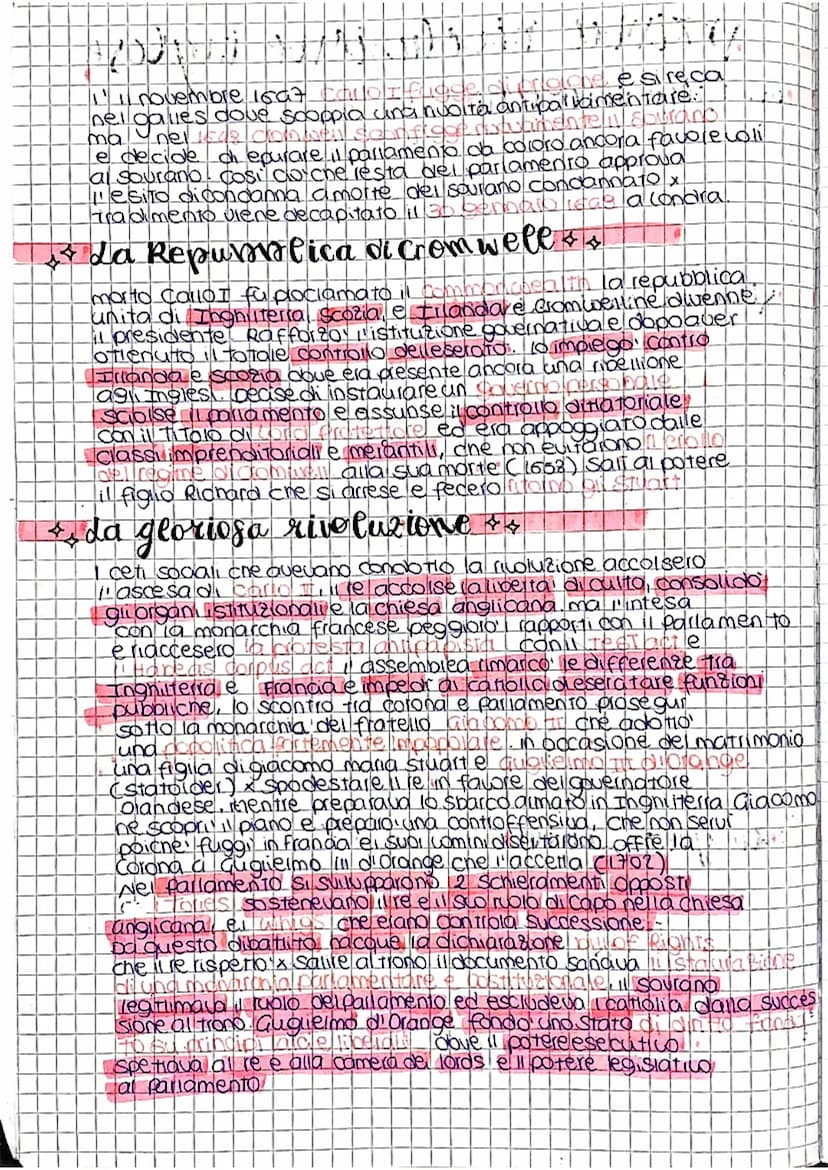 l'11 novembre 1647 Carlo I fugge di prigione e si reca
nel galles dove scoppia una rivolta antiparlamentare.
ma nel 1648 cromwell sconfigge nuovamente il sovrano
e decide di epurare il parlamento da coloro ancora favorevoli
al sovrano. così ciò che resta del parlamento approva
l'esito di condanna a morte del sovrano condannato x
tradimento viene decapitato il 30 gennaio 1649 a Londra.
La Repubblica di Cromwell
morto Carlo I fù proclamato il commonwealth la repubblica
unita di Inghilterra, Scozia, e Irlanda e Cromwell ne divenne
il presidente. Rafforzò l'istituzione governativa e dopo aver
ottenuto il totale controllo dell'esercito. lo impiegò contro
Irlanda e scozia dove era presente ancora una ribellione
agli inglesi. Decise di instaurare un Governo personale
sciolse il parlamento e assunse il controllo dittatoriale
con il titolo di Lord Protettore ed era appoggiato dalle
classi imprenditoriali e mercantili, che non evitarono il crollo
del regime di cromwell alla sua morte (1658) salì al potere
il figlio Richard che si arrese e fecero ritorno gli Stuart
La gloriosa rivoluzione
I ceti sociali che avevano condotto la rivoluzione accolsero
l'ascesa di Carlo II, il re accolse la libertà di culto, consolidò
gli organi istituzionali e la chiesa anglicana. ma l'intesa
con la monarchia francese peggiorò i rapporti con il parlamento
e riaccesero la protesta antipapista con il Test act e
l'Habeas corpus act l'assemblea rimarcò le differenze tra
Inghilterra e Francia e impedì ai cattolici di esercitare funzioni
pubbliche, lo scontro tra corona e parlamento proseguì
sotto la monarchia del fratello Giacomo II che adottò
una politica fortemente impopolare. in occasione del matrimonio
una figlia di giacomo maria stuart e Guglielmo III d'orange
(statolder) x spodestare il re in favore del governatore
olandese. Mentre preparava lo sbarco armato in Inghilterra Giacomo
ne scoprì il piano e preparò una controffensiva, che non servì
poiché fuggì in francia e i suoi uomini disertarono offre la
corona a Guglielmo III d'orange che l'accetta (1702)
Nel parlamento si svilupparono 2 schieramenti opposti
i Tories sostenevano il re e il suo ruolo di capo nella chiesa
anglicana, e i whigs che erano contro la successione.
Da questo dibattito nacque la dichiarazione bill of Rights
che il re rispettò x salire al trono il documento sanciva l'instaurazione
di una monarchia parlamentare e costituzionale, il sovrano
legittimava il ruolo del parlamento ed escludeva i cattolici dalla succes
sione al trono. Guglielmo d'Orange fondò uno stato di diritto fonda
to su principi laici e liberali dove il potere esecutivo
spettava al re e alla camera dei lords e il potere legislativo
al parlamento